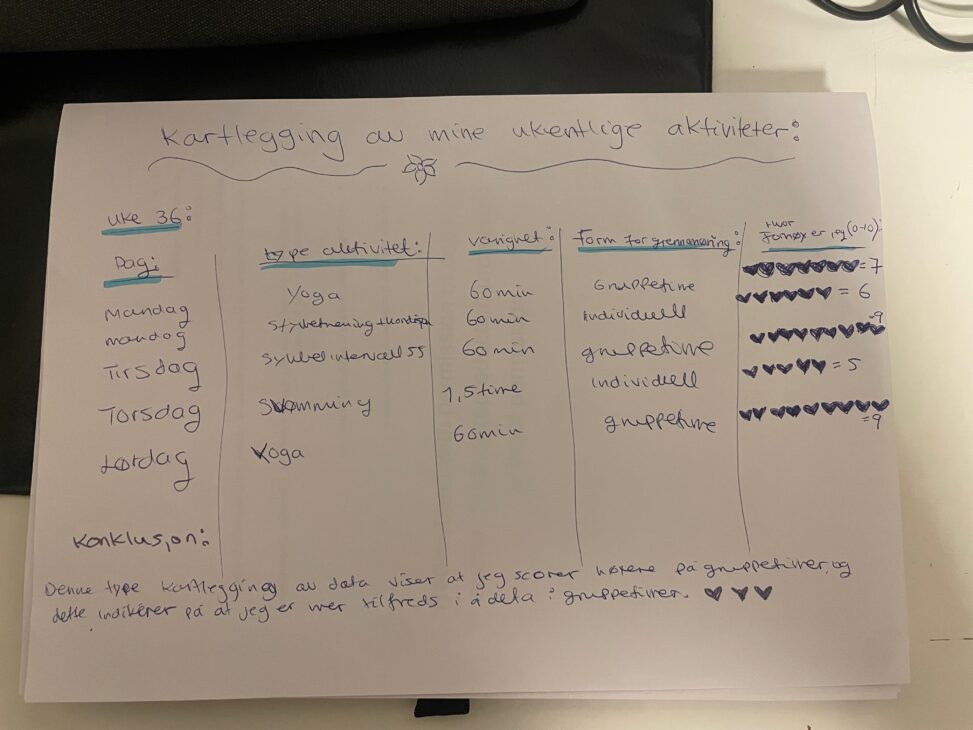 Kartlegging av mine ukentlige aktiviteter:
Uke 36:
Dag: type aktivitet: varighet: Form for gjennomføring: Hvor fornøyd er jeg (0-10):
Mandag Yoga 60 min Gruppetime ♥♥♥♥♥♥♥ = 7
mandag styrketrening + kondisjon 60 min individuell ♥♥♥♥♥♥ = 6
Tirsdag sykkel intervall 55 60 min gruppetime ♥♥♥♥♥♥♥♥♥ = 9
Torsdag Svømming 1,5 time individuell ♥♥♥♥♥ = 5
Lørdag Yoga 60 min gruppetime ♥♥♥♥♥♥♥♥♥ = 9
Konklusjon:
Denne type kartlegging av data viser at jeg scorer høyere på gruppetimer, og
dette indikerer på at jeg er mer tilfreds i å delta i gruppetimer. ♥ ♥ ♥